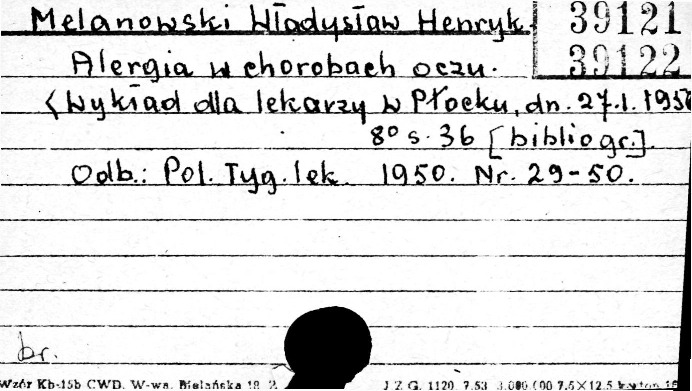 Melanowski Władysław Henryk.
39121
39122
Alergia w chorobach oczu.
(Wykład dla lekarzy w Płocku, dn. 27.1. 1950
8° s. 36 [bibliogr.].
Odb.: Pol. Tyg. lek. 1950. Nr. 29-50.
br.
Wzór Kb-15b CWD. W-wa, Bielańska 18. 2.
J Z G. 1120. 7.53 3.000.000 7.5×12.5